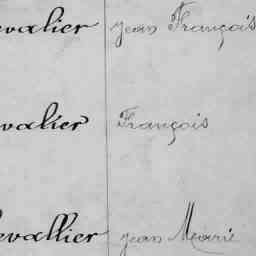 evalier Jean François
valier François
evallier Jean Marie